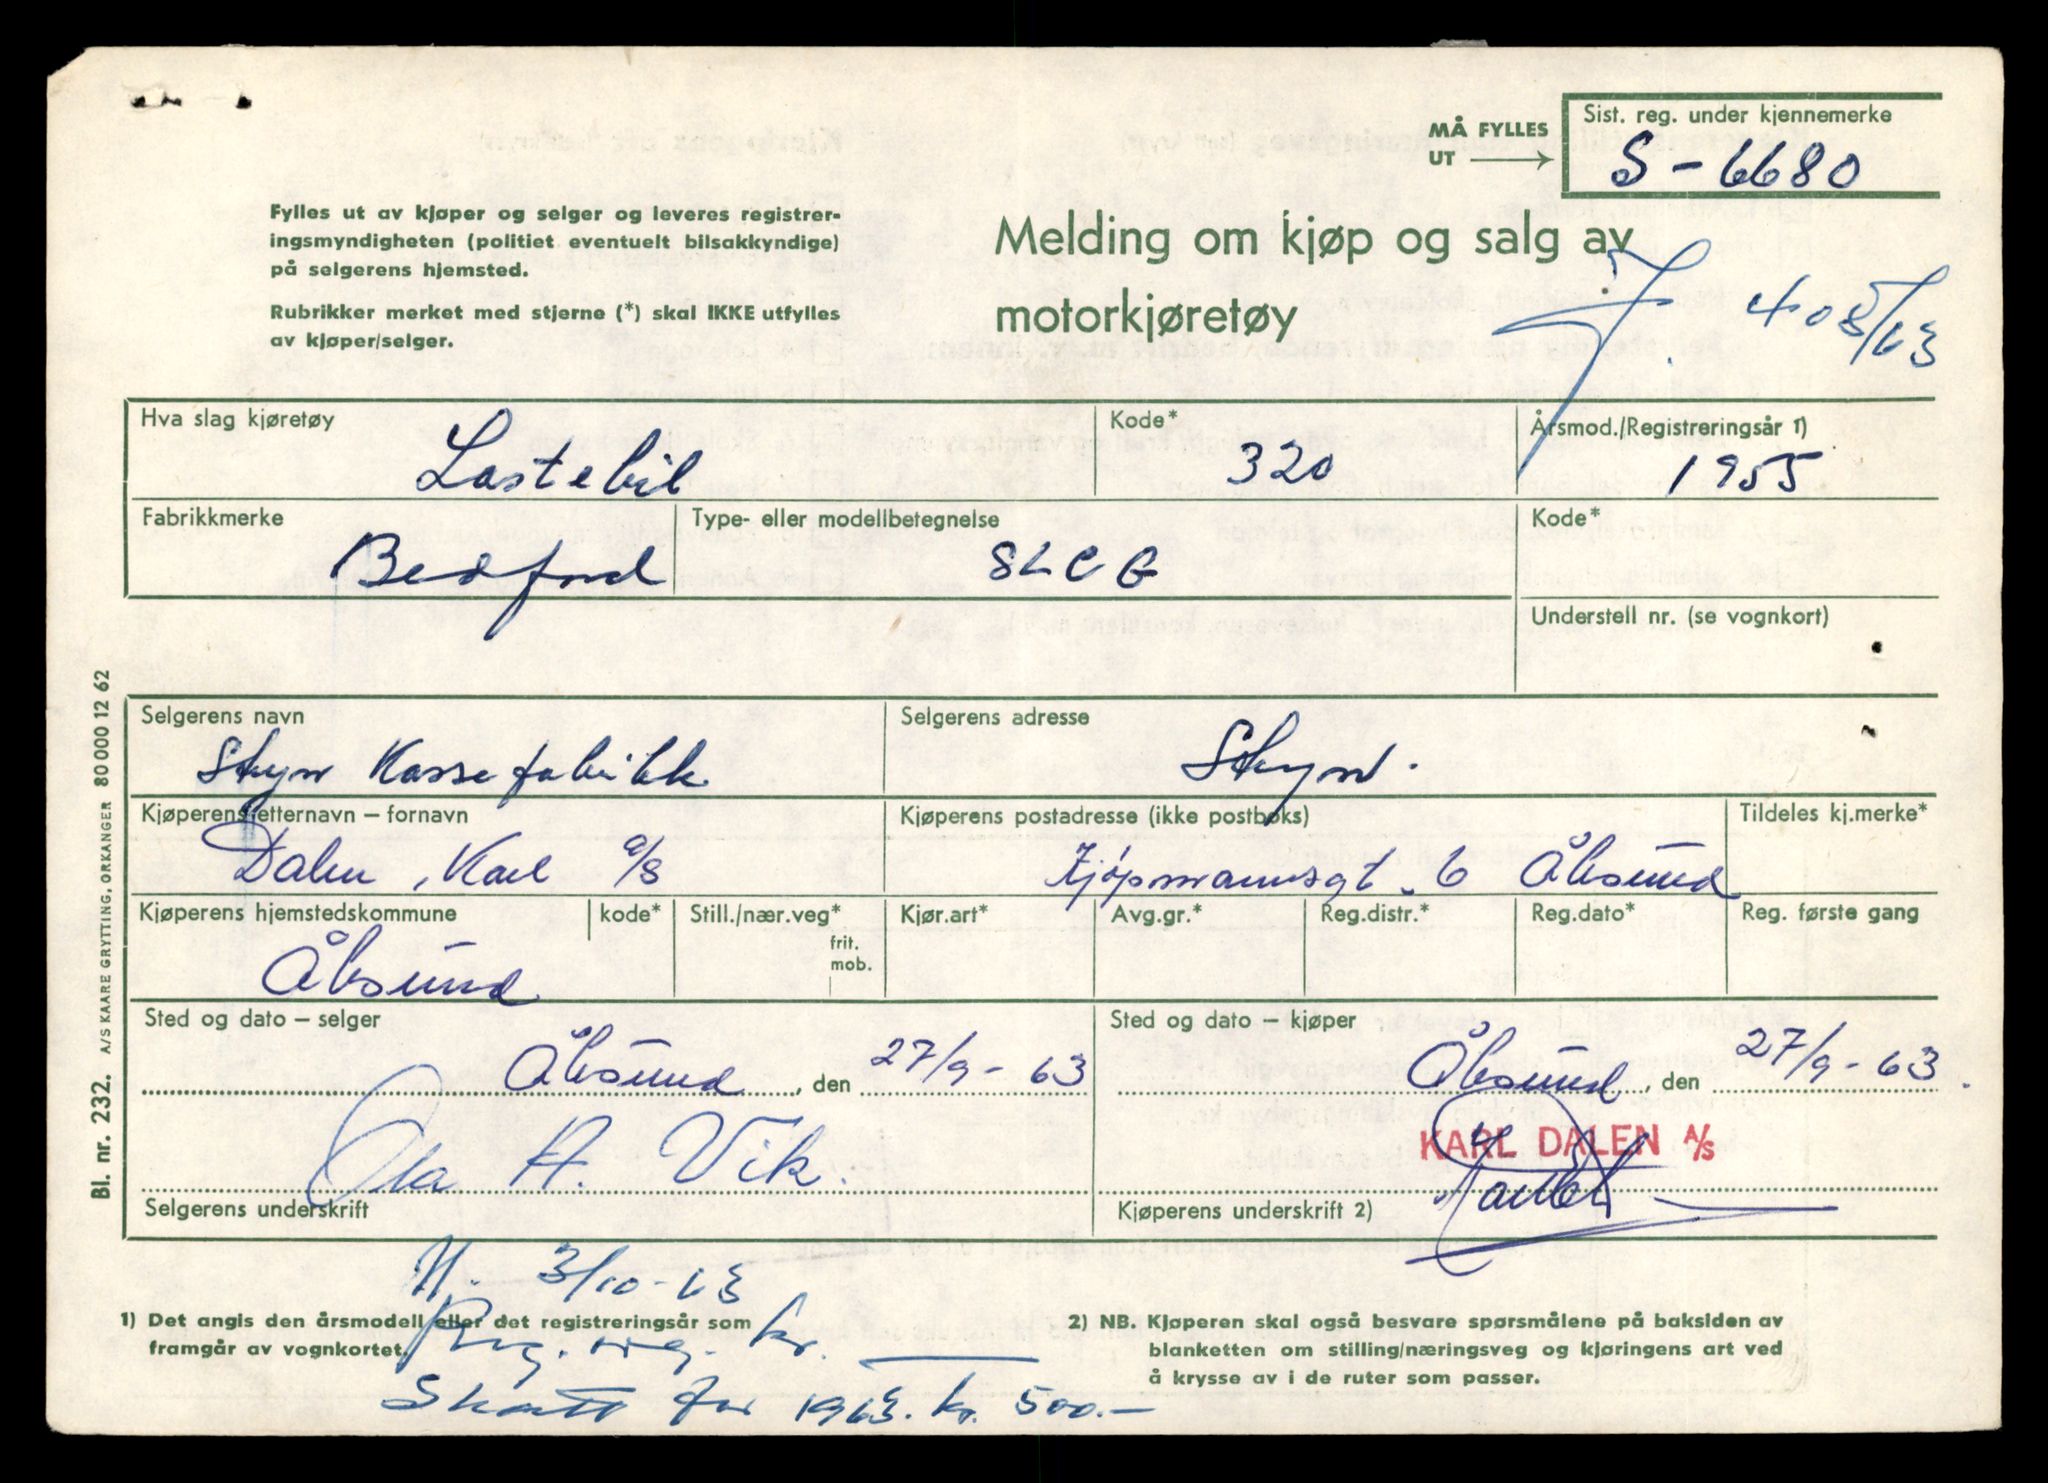 MÅ FYLLES
UT
Sist. reg. under kjennemerke
S-6680
Fylles ut av kjøper og selger og leveres registrer-
ingsmyndigheten (politiet eventuelt bilsakkyndige)
på selgerens hjemsted.
Rubrikker merket med stjerne (*) skal IKKE utfylles
av kjøper/selger.
Melding om kjøp og salg av
motorkjøretøy
J. 405/63
Hva slag kjøretøy
Lastebil
Kode*
320
Årsmod./Registreringsår 1)
1955
Fabrikkmerke
Bedford
Type- eller modellbetegnelse
SLCG
Kode*
Understell nr. (se vognkort)
Selgerens navn
Stryn Kassefabrikk
Selgerens adresse
Stryn.
Kjøperens etternavn – fornavn
Dalen, Karl a/s
Kjøperens postadresse (ikke postboks)
Kjøpmannsgt. 6 Ålesund
Tildeles kj.merke*
Kjøperens hjemstedskommune
Ålesund
kode*
Still./nær.veg*
frit.
mob.
Kjør.art*
Avg.gr.*
Reg.distr.*
Reg.dato*
Reg. første gang
Sted og dato – selger
Ålesund, den 27/9-63
Ola A. Vik.
Selgerens underskrift
Sted og dato – kjøper
Ålesund, den 27/9-63.
KARL DALEN A/S
Kjøperens underskrift 2)
N. 3/10-63
1) Det angis den årsmodell eller det registreringsår som
framgår av vognkortet.
Reg. avg. kr. ——
Skatt for 1963. kr. 500.-
2) NB. Kjøperen skal også besvare spørsmålene på baksiden av
blanketten om stilling/næringsveg og kjøringens art ved
å krysse av i de ruter som passer.
Bl. nr. 232. A/S KAARE GRYTTING, ORKANGER 80000 12 62